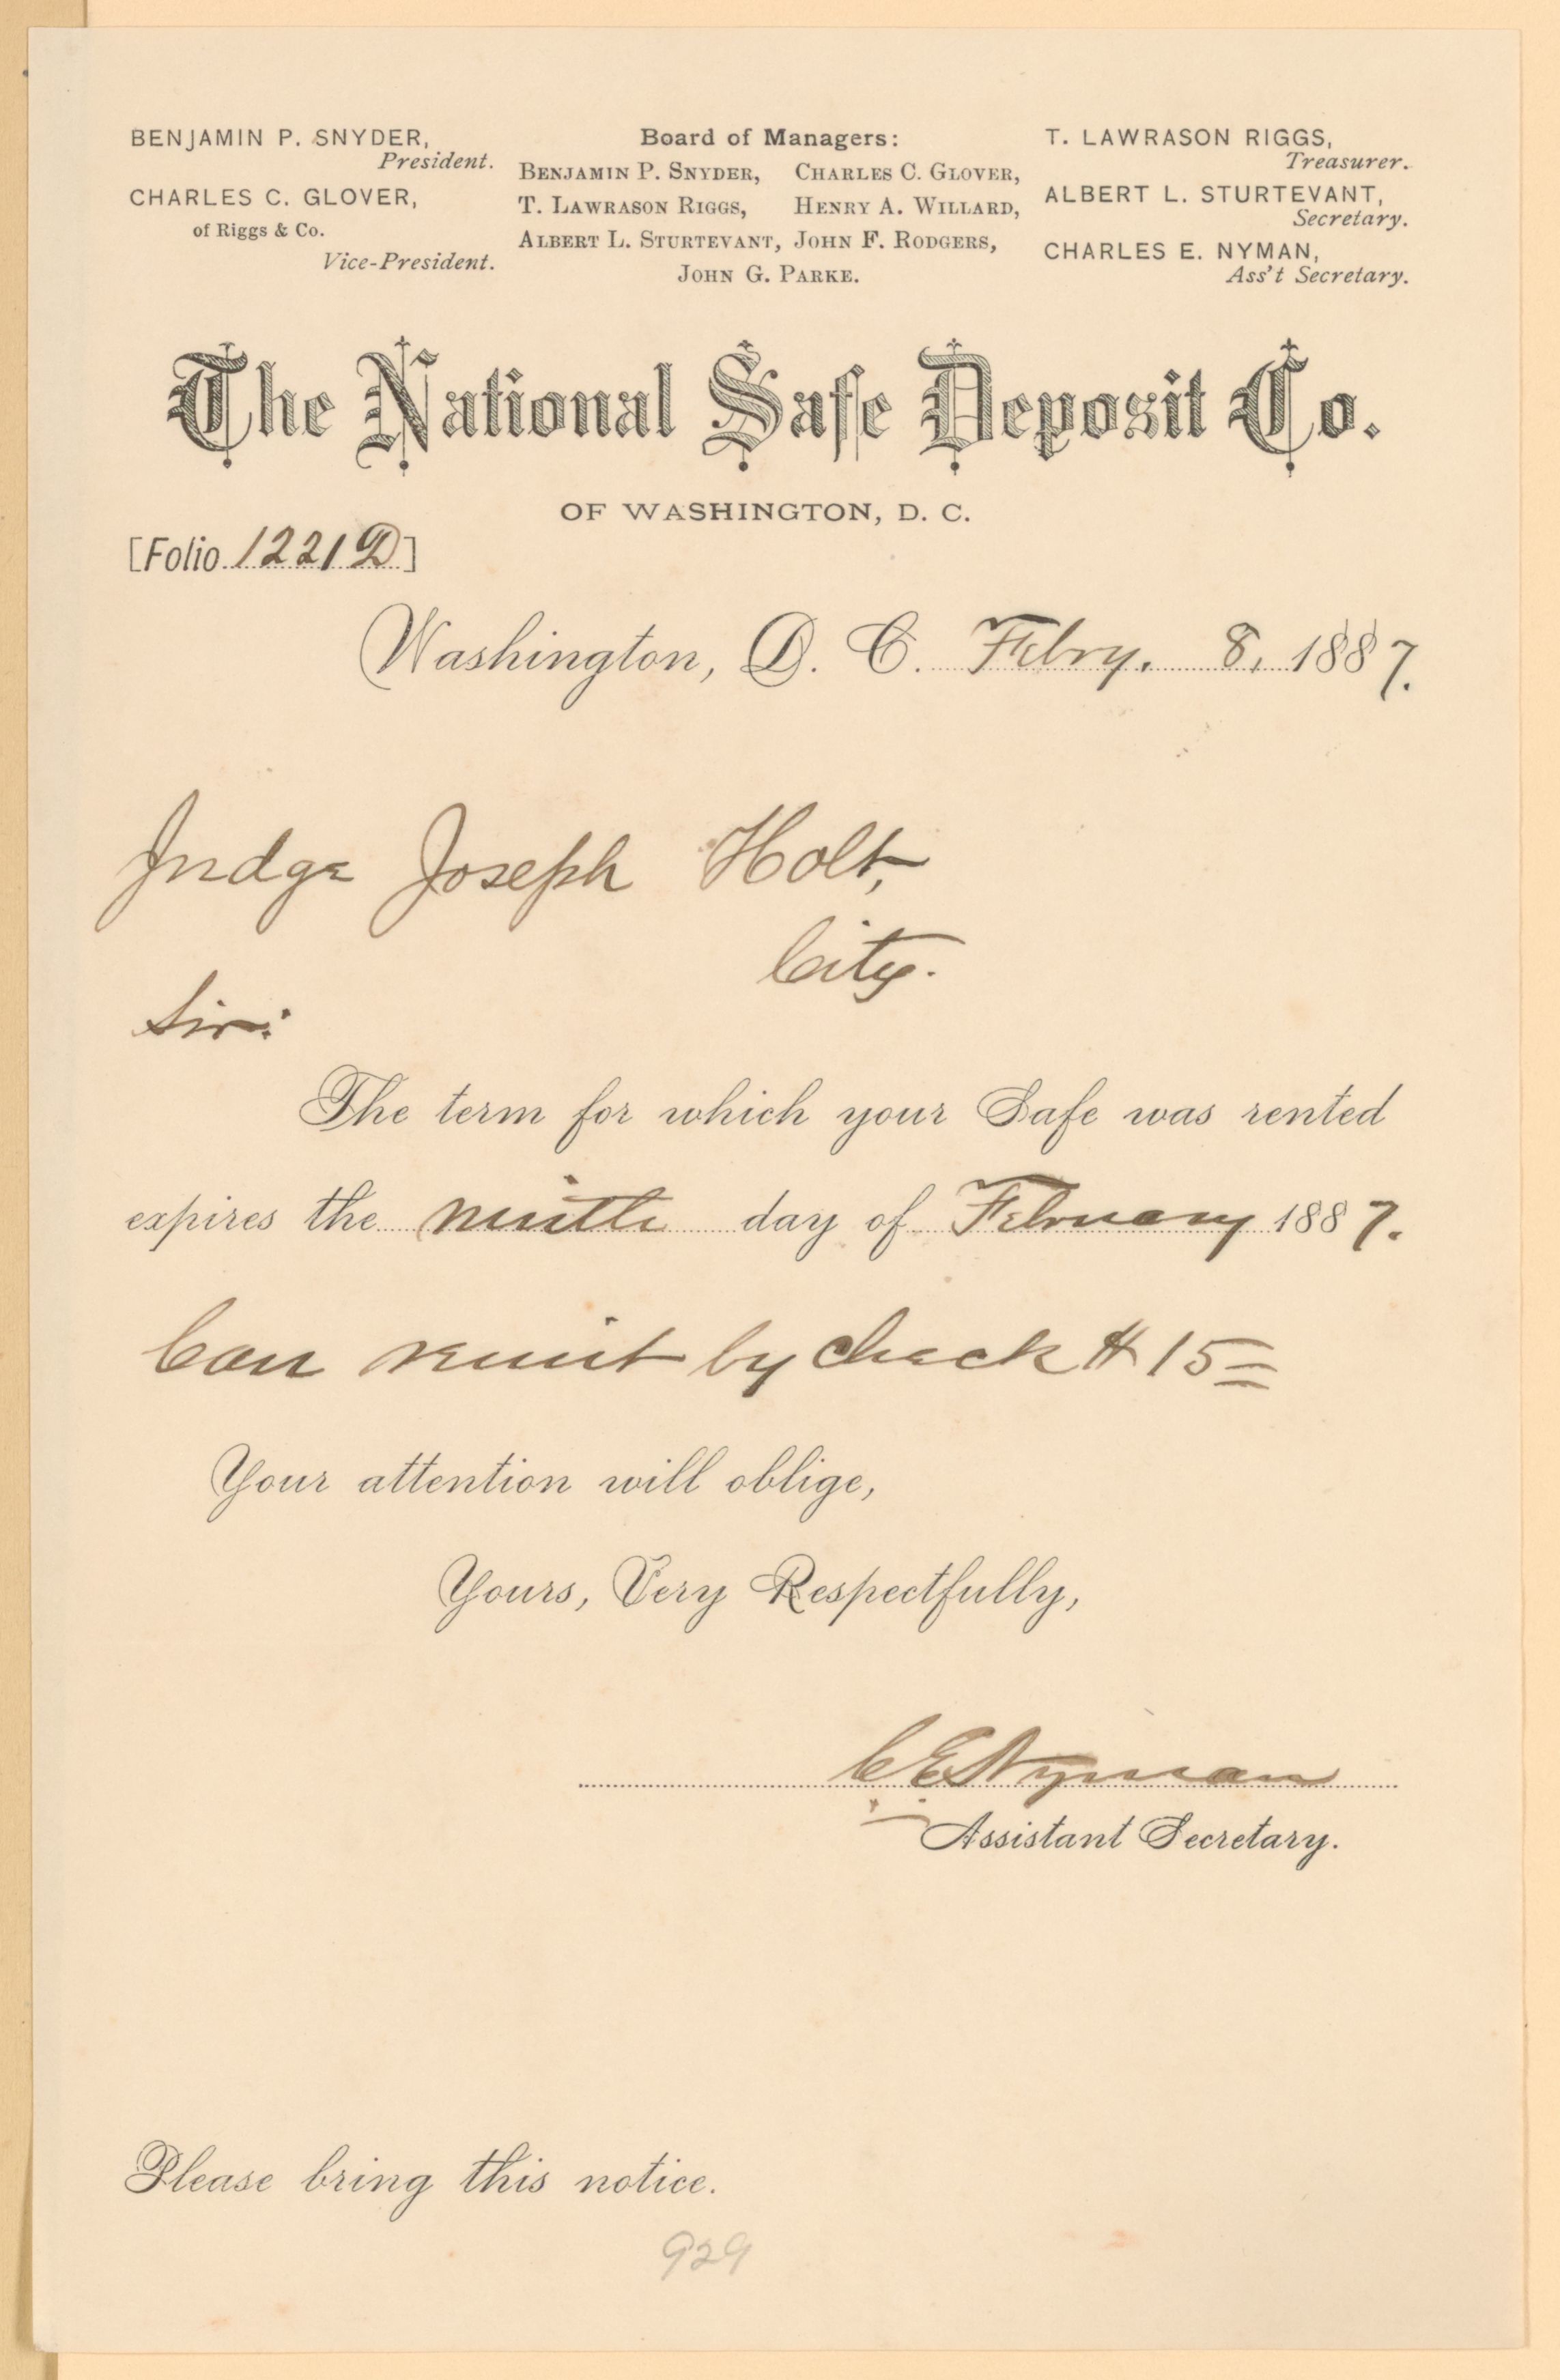 BENJAMIN P. SNYDER,
President.
CHARLES C. GLOVER,
of Riggs & Co.
Vice-President.
Board of Managers:
BENJAMIN P. SNYDER, CHARLES C. GLOVER,
T. LAWRASON RIGGS, HENRY A. WILLARD,
ALBERT L. STURTEVANT, JOHN F. RODGERS,
JOHN G. PARKE.
T. LAWRASON RIGGS,
Treasurer.
ALBERT L. STURTEVANT,
Secretary.
CHARLES E. NYMAN,
Ass't Secretary.
The National Safe Deposit Co.
OF WASHINGTON, D. C.
[Folio 1221 D]
Washington, D. C. Febry. 8, 1887.
Judge Joseph Holt,
City.
Sir:
The term for which your Safe was rented
expires the ninth day of February 1887.
Can remit by check $15=
Your attention will oblige,
Yours, Very Respectfully,
C E Nyman
Assistant Secretary.
Please bring this notice.
929